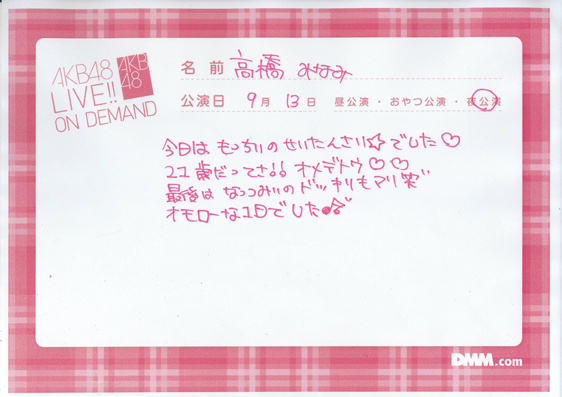 AKB48
LIVE!!
ON DEMAND
AKB
48
名前 高橋 みなみ
公演日 9月 13日 昼公演・おやつ公演・夜公演
今日は もっちぃの せいたんさい☆でした♡
22歳だってさ!! オメデトウ♡♡
最後は なっつみぃの ドッキリもアリ笑
オモローな1日でした♪
DMM.com